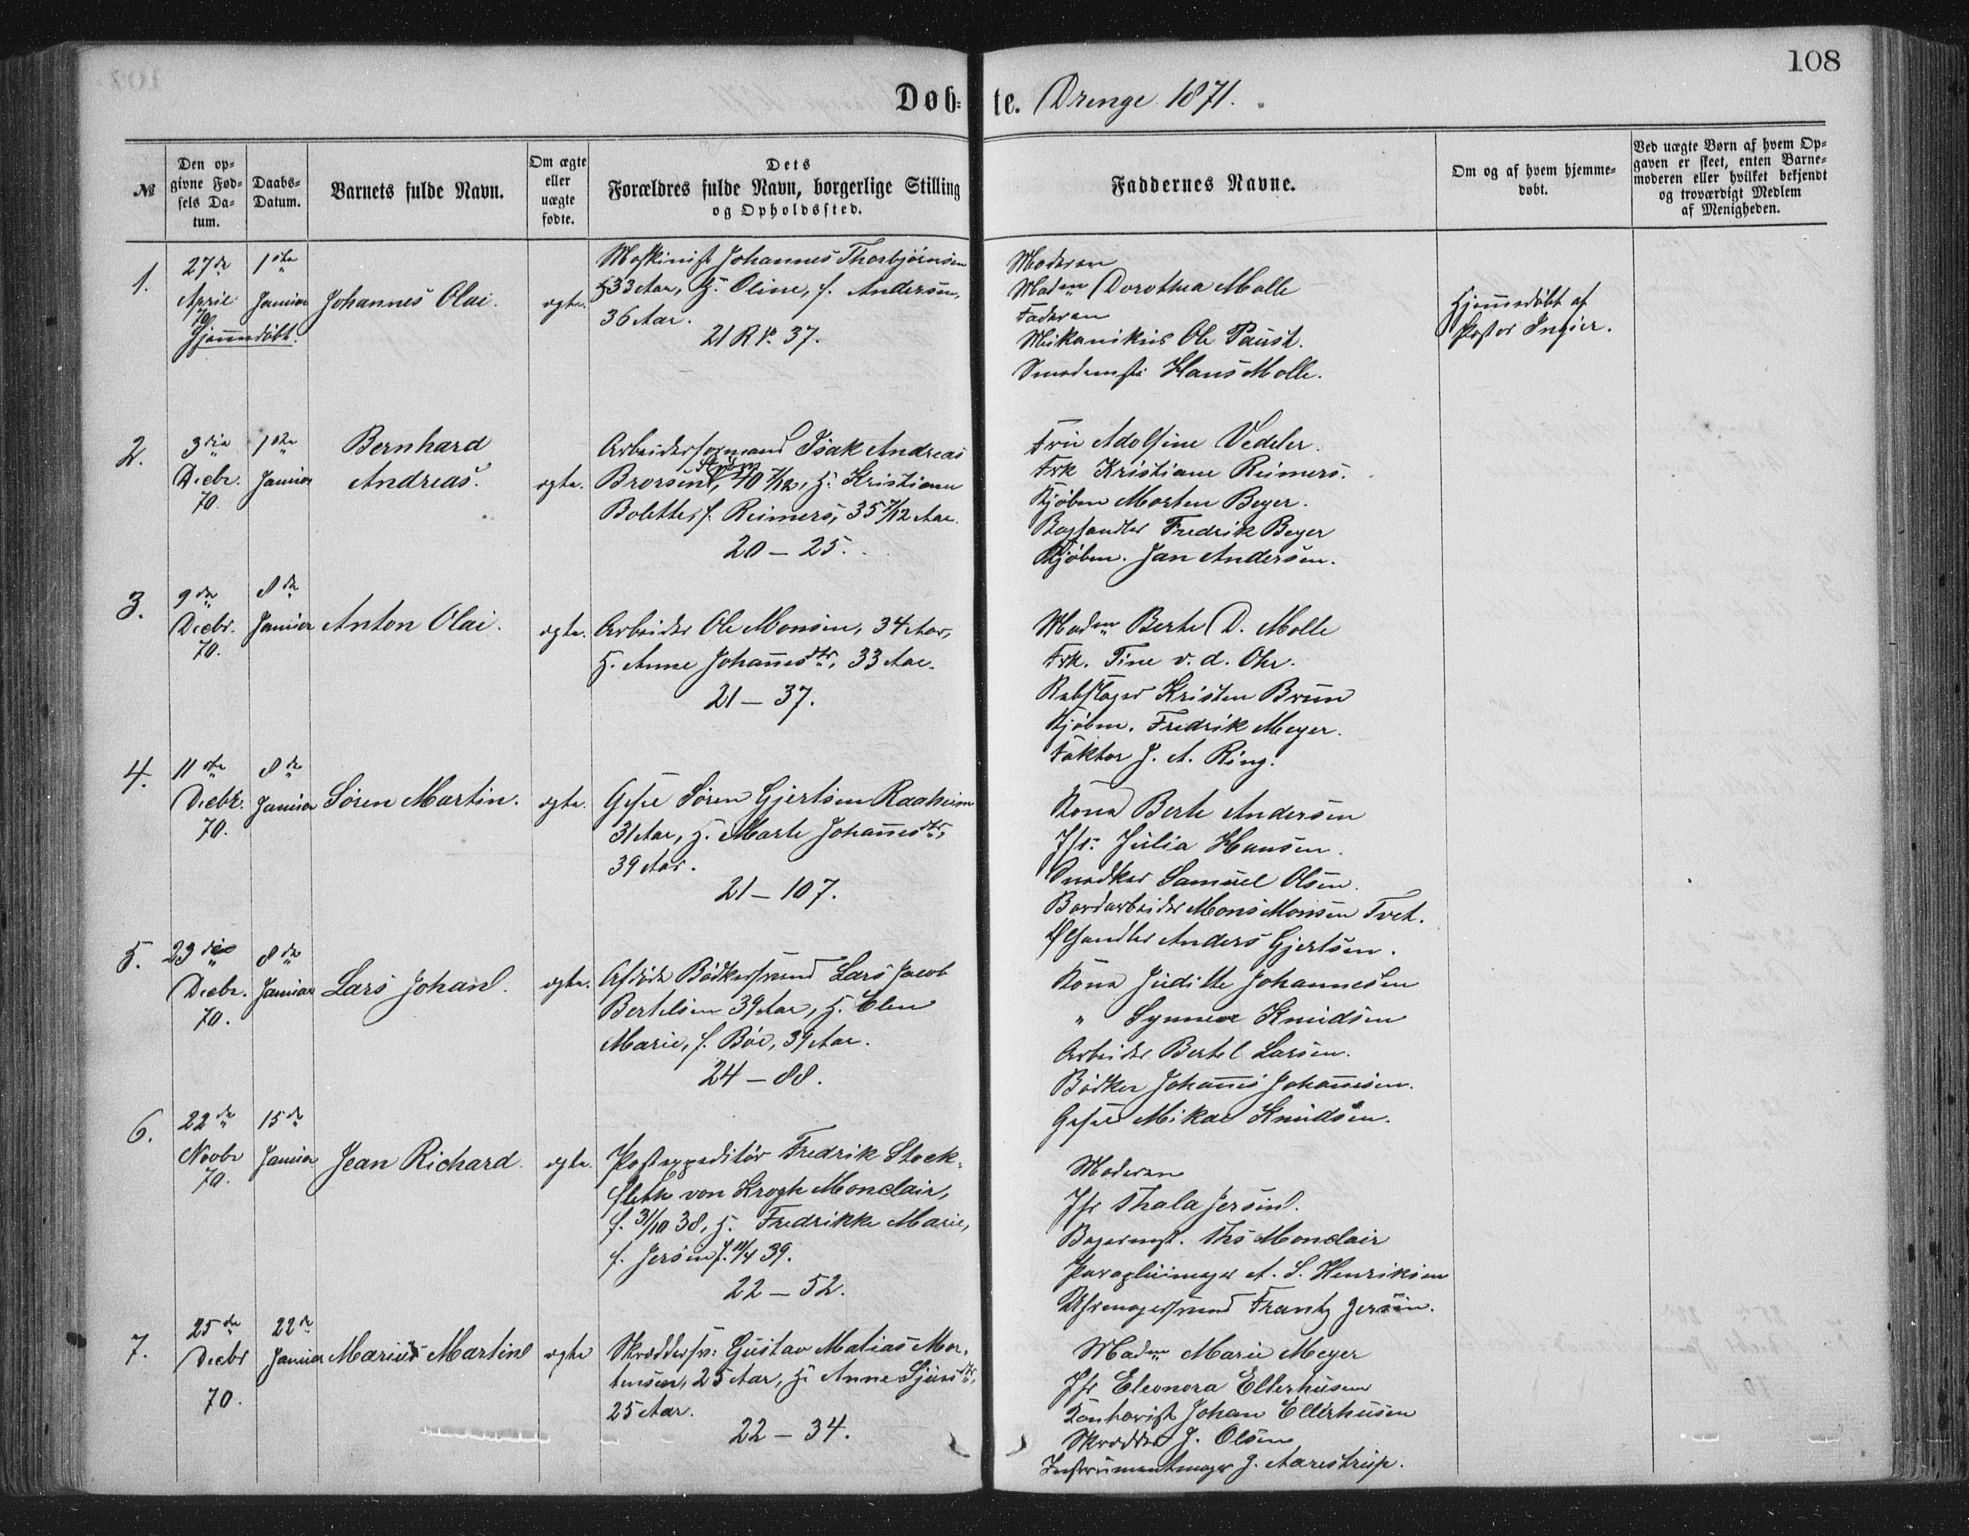 108
Døb-te. Drenge 1871.
№
Den op-
givne Fød-
sels Da-
tum.
Daabs-
Datum.
Barnets fulde Navn.
Om ægte
eller
uægte
fødte.
Dets
Forældres fulde Navn, borgerlige Stilling
og Opholdssted.
Faddernes Navne.
Om og af hvem hjemme-
døbt.
Ved uægte Børn af hvem Op-
gaven er skeet, enten Barne-
moderen eller hvilket bekjendt
og troværdigt Medlem
af Menigheden.
1.
27de
April
70
Hjemmedøbt.
1ste
Januar
Johannes Olai.
ægte.
Maskinist Johannes Thorbjørnsen
33 Aar, H. Oline, f. Andersen,
36 Aar.
21 R № 37.
Moderen
Madm Dorothea Molle
Faderen
Mekanikus Ole Paust.
Smedemstr Hans Molle.
Hjemmedøbt af
Pastor Ingier.
2.
3die
Decbr.
70.
1ste
Januar
Bernhard
Andreas.
ægte.
Arbeidsformand Isak Andreas
Strøm
Brorsen, 40 7/12, H. Kristiane
Bolette, f. Reimers, 35 7/12 Aar.
20 – 25.
Fru Adolfine Vedeler.
Frk Kristiane Reimers.
Kjøbm Morten Beyer.
Boghandler Fredrik Beyer
Kjøbm. Jan Andersen.
3.
9de
Decbr.
70.
8de
Januar
Anton Olai.
ægte.
Arbeider Ole Monsen, 34 Aar,
H. Anne Johannesdtr, 33 Aar.
21 – 37.
Madm Berte D. Molle
Frk. Tine v. d. Ohe.
Rebslager Kristen Brun
Kjøbm. Fredrik Meyer.
Faktor J. A. Ring.
4.
11te
Decbr.
70.
8de
Januar
Søren Martin.
ægte.
Gesel Søren Gjertsen Raaheim
31 Aar, H. Marte Johannesdtr,
39 Aar.
21 – 107.
Kona Berte Andersen
Jfr. Julia Hansen.
Snedker Samuel Olsen.
Bordarbeider Mons Monsen Tvet.
Ølhandler Anders Gjertsen.
5.
23die
Decbr.
70.
8de
Januar
Lars Johan.
ægte.
Afdøde Bødkersvend Lars Jacob
Bertelsen 39 Aar, H. Elen
Marie, f. Bøe, 39 Aar.
24 – 88.
Kona Juditte Johannesen
" Synneve Knudsen
Arbeider Bertel Larsen.
Bødker Johannes Johannesen.
Gesel Mikal Knudsen.
6.
22de
Novbr
70.
15de
Januar
Jean Richard.
ægte.
Postexpeditør Fredrik Stock-
fleth von Krogh Monclair,
f. 31/10 38, H. Fredrikke Marie,
f. Jersin f. 11/4 39.
22 – 52.
Moderen
Jfr Thala Jersin.
Bagermst. Ths Monclair
Paraplüimager A. S. Henriksen
Uhrmagersvend Frantz Jersin.
7.
25de
Decbr
70.
22de
Januar
Marius Martin
ægte
Skræddersv: Gustav Matias Mor-
tensen, 25 Aar, H: Anne Sjursdtr,
25 Aar.
22 – 34.
Madm Marie Meyer
Jfr Eleonora Ellerhusen
Kontorist Johan Ellerhusen
Skrædder J. Olsen
Instrumentmager J. Aarestrup.